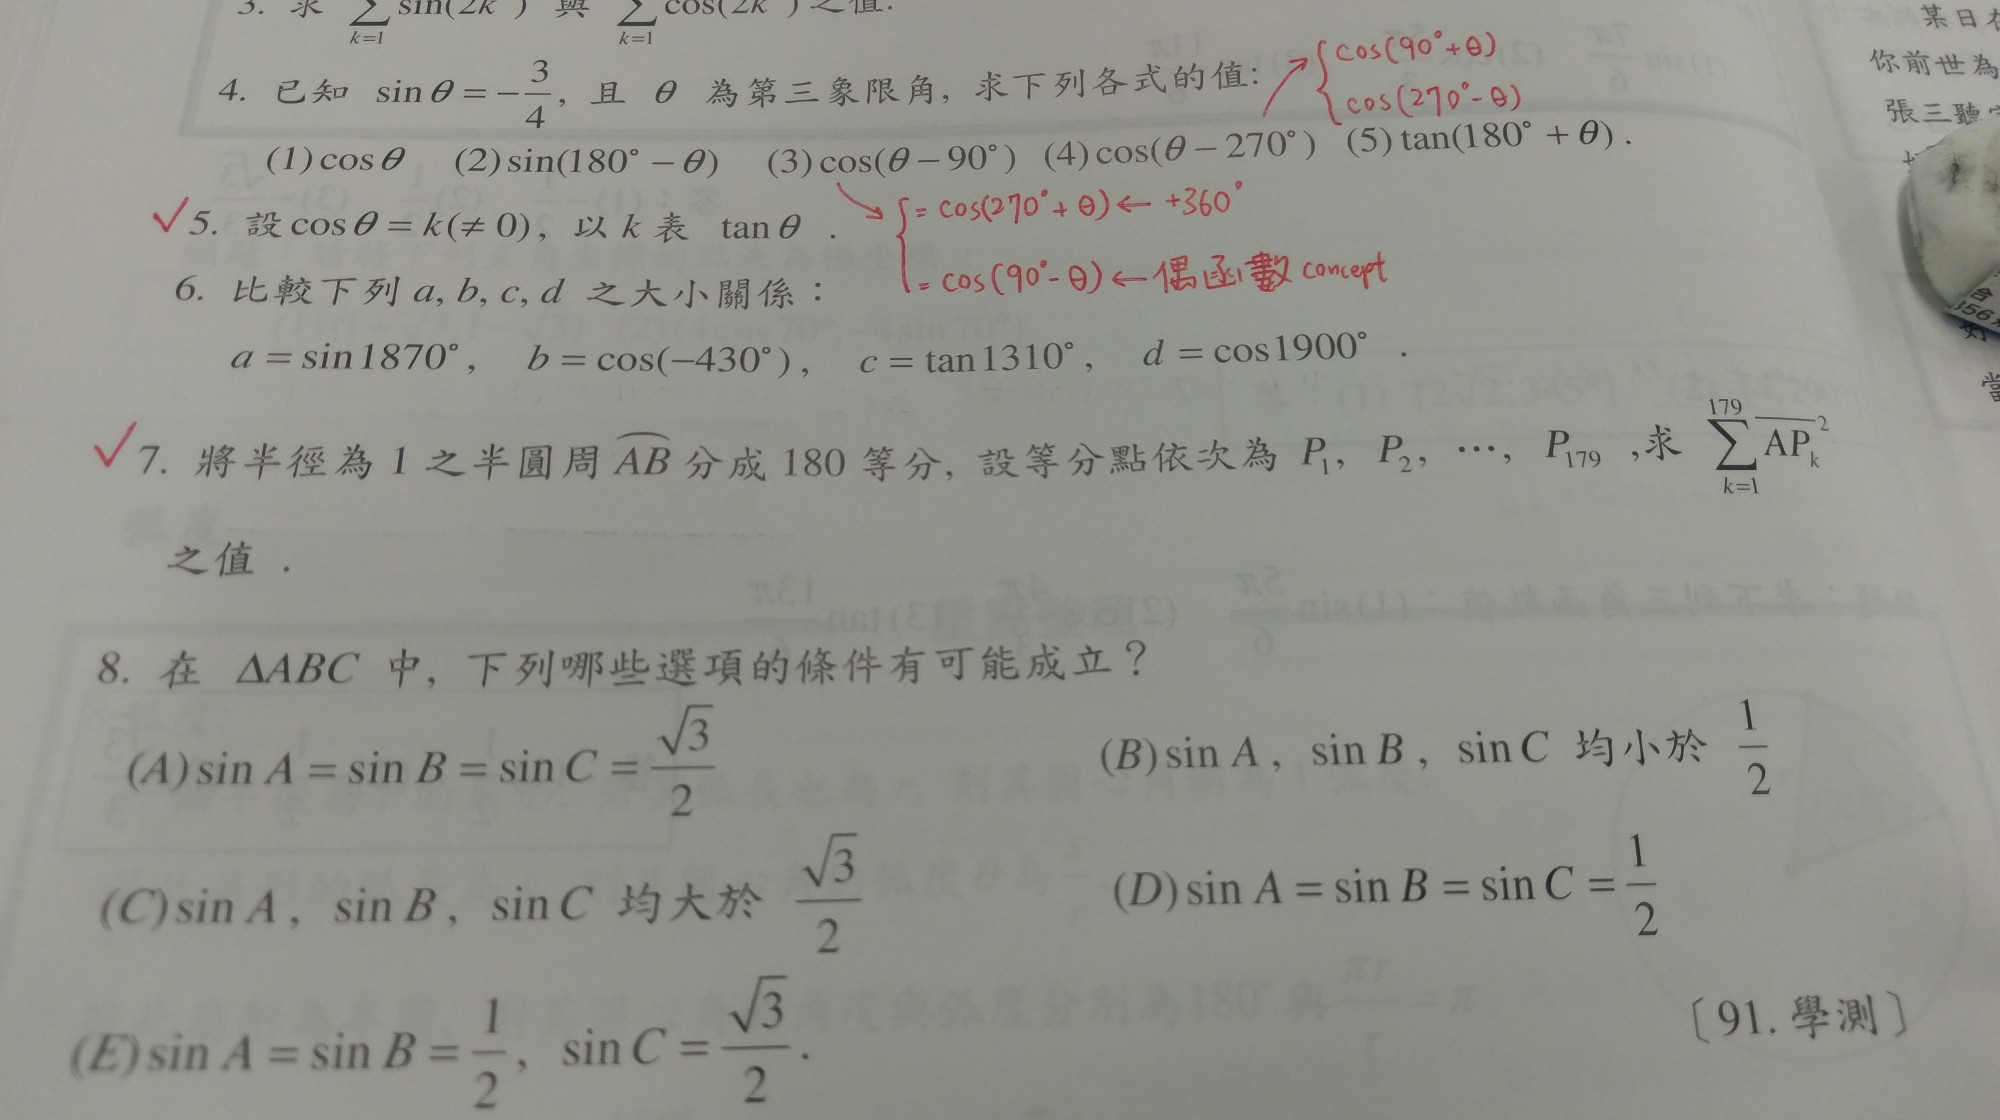 3. 求 ∑ sin(2k ) 與 ∑ cos(2k ) 之值.
k=1 k=1
4. 已知 sinθ = -3/4, 且 θ 為第三象限角, 求下列各式的值:
cos(90°+θ)
cos(270°-θ)
(1)cosθ (2)sin(180° − θ) (3)cos(θ − 90°) (4)cos(θ − 270°) (5)tan(180° + θ).
= cos(270°+θ) ← +360°
✓5. 設 cosθ = k(≠ 0), 以 k 表 tanθ .
= cos(90°-θ) ← 偶函數 concept
6. 比較下列 a, b, c, d 之大小關係：
a = sin1870°, b = cos(−430°), c = tan1310°, d = cos1900° .
✓7. 將半徑為 1 之半圓周 AB 分成 180 等分, 設等分點依次為 P₁, P₂, …, P₁₇₉ ,求 ∑(k=1→179) APₖ²
之值 .
8. 在 ΔABC 中, 下列哪些選項的條件有可能成立？
(A)sin A = sin B = sin C = √3/2 (B)sin A, sin B, sin C 均小於 1/2
(C)sin A, sin B, sin C 均大於 √3/2 (D)sin A = sin B = sin C = 1/2
(E)sin A = sin B = 1/2, sin C = √3/2. 〔91.學測〕
某日在
你前世為
張三聽
356
當